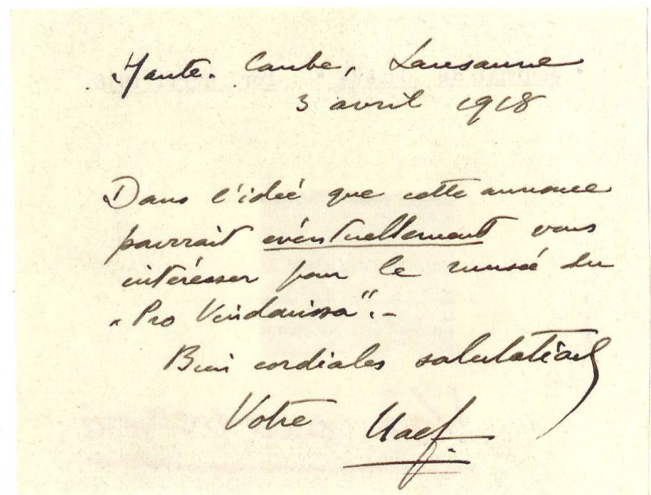 Haute-Combe, Lausanne
3 avril 1918
Dans l'idée que cette annonce
pourrait éventuellement vous
intéresser pour le musée du
"Pro Vindonissa".-
Bien cordiales salutations
Votre Naef.